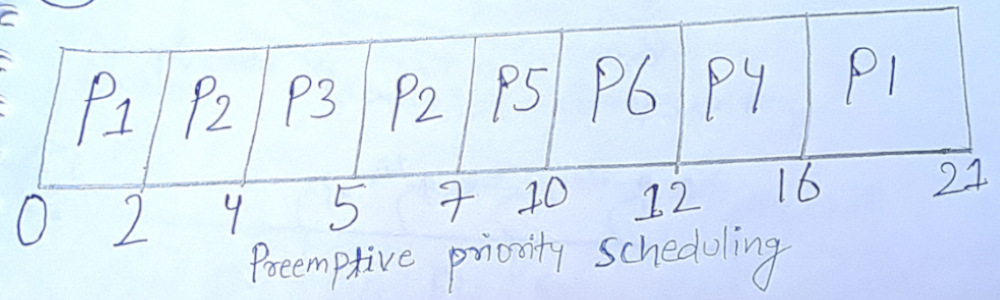 P1 P2 P3 P2 P5 P6 P4 P1
0 2 4 5 7 10 12 16 21
Preemptive priority scheduling